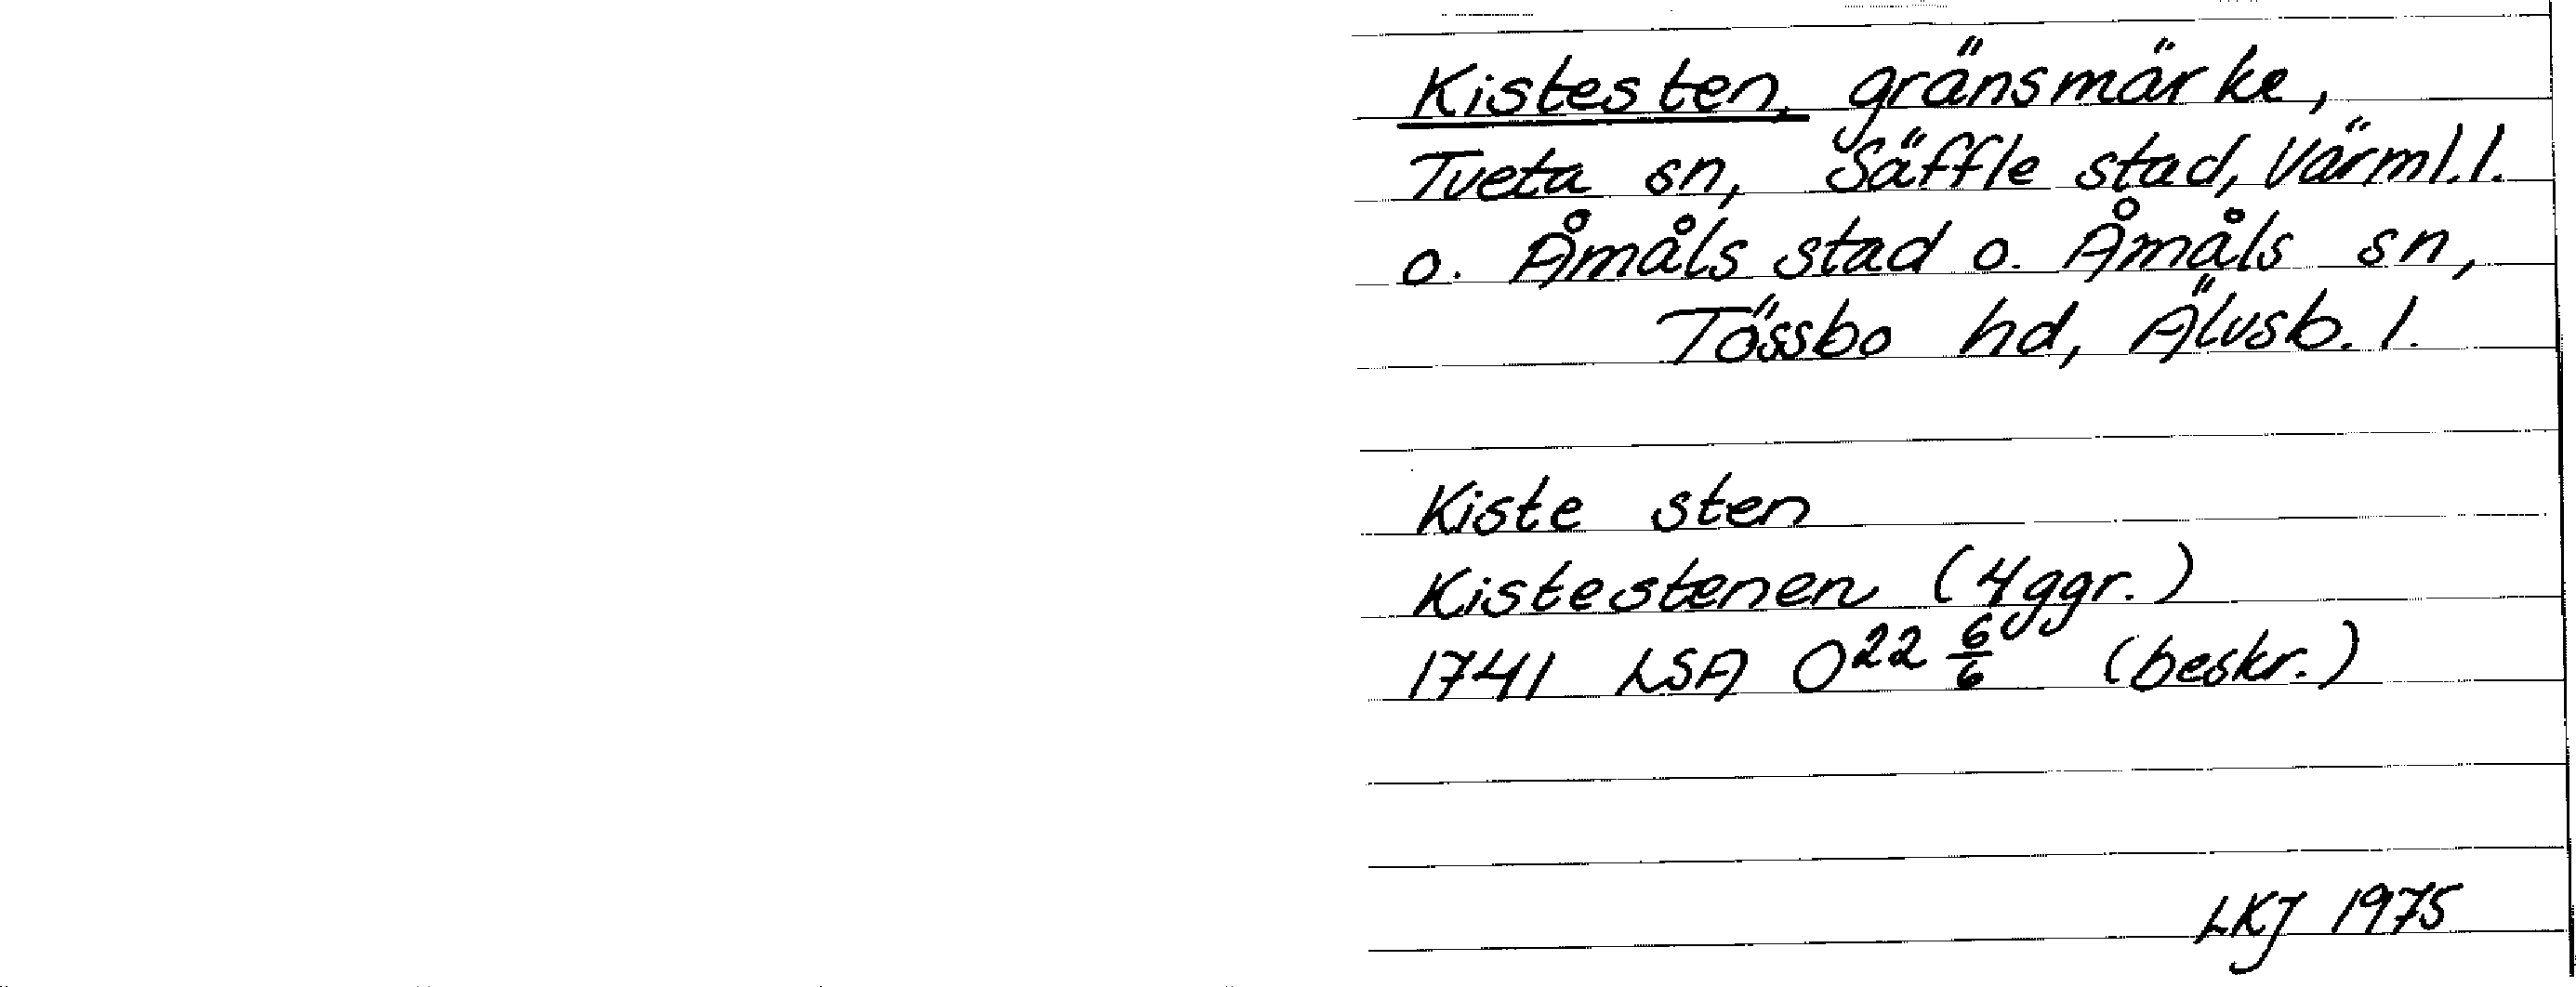 Kistesten, gränsmärke,
Tveta sn, Säffle stad, Värml.l.
o. Åmåls stad o. Åmåls sn,
Tössbo hd, Älvsb. l.
Kiste sten
Kistestenen (4ggr.)
1741 LSA O22 6/6 (beskr.)
LKJ 1975